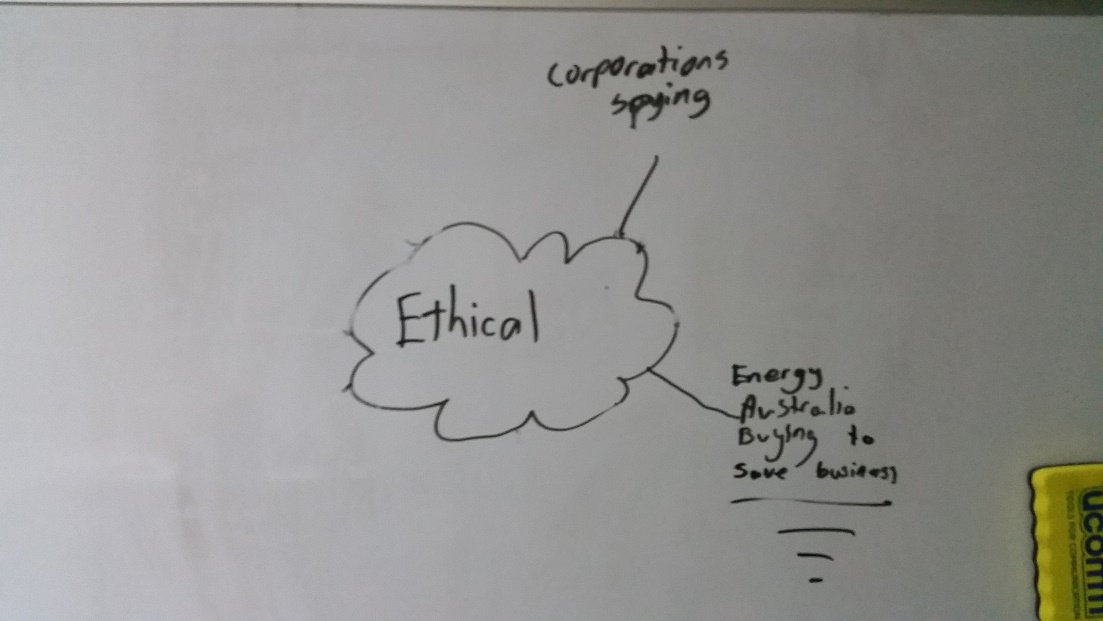 corporations
spying
Ethical
Energy
Australia
Buying to
save business
TOOLS FOR COMMUNICATION